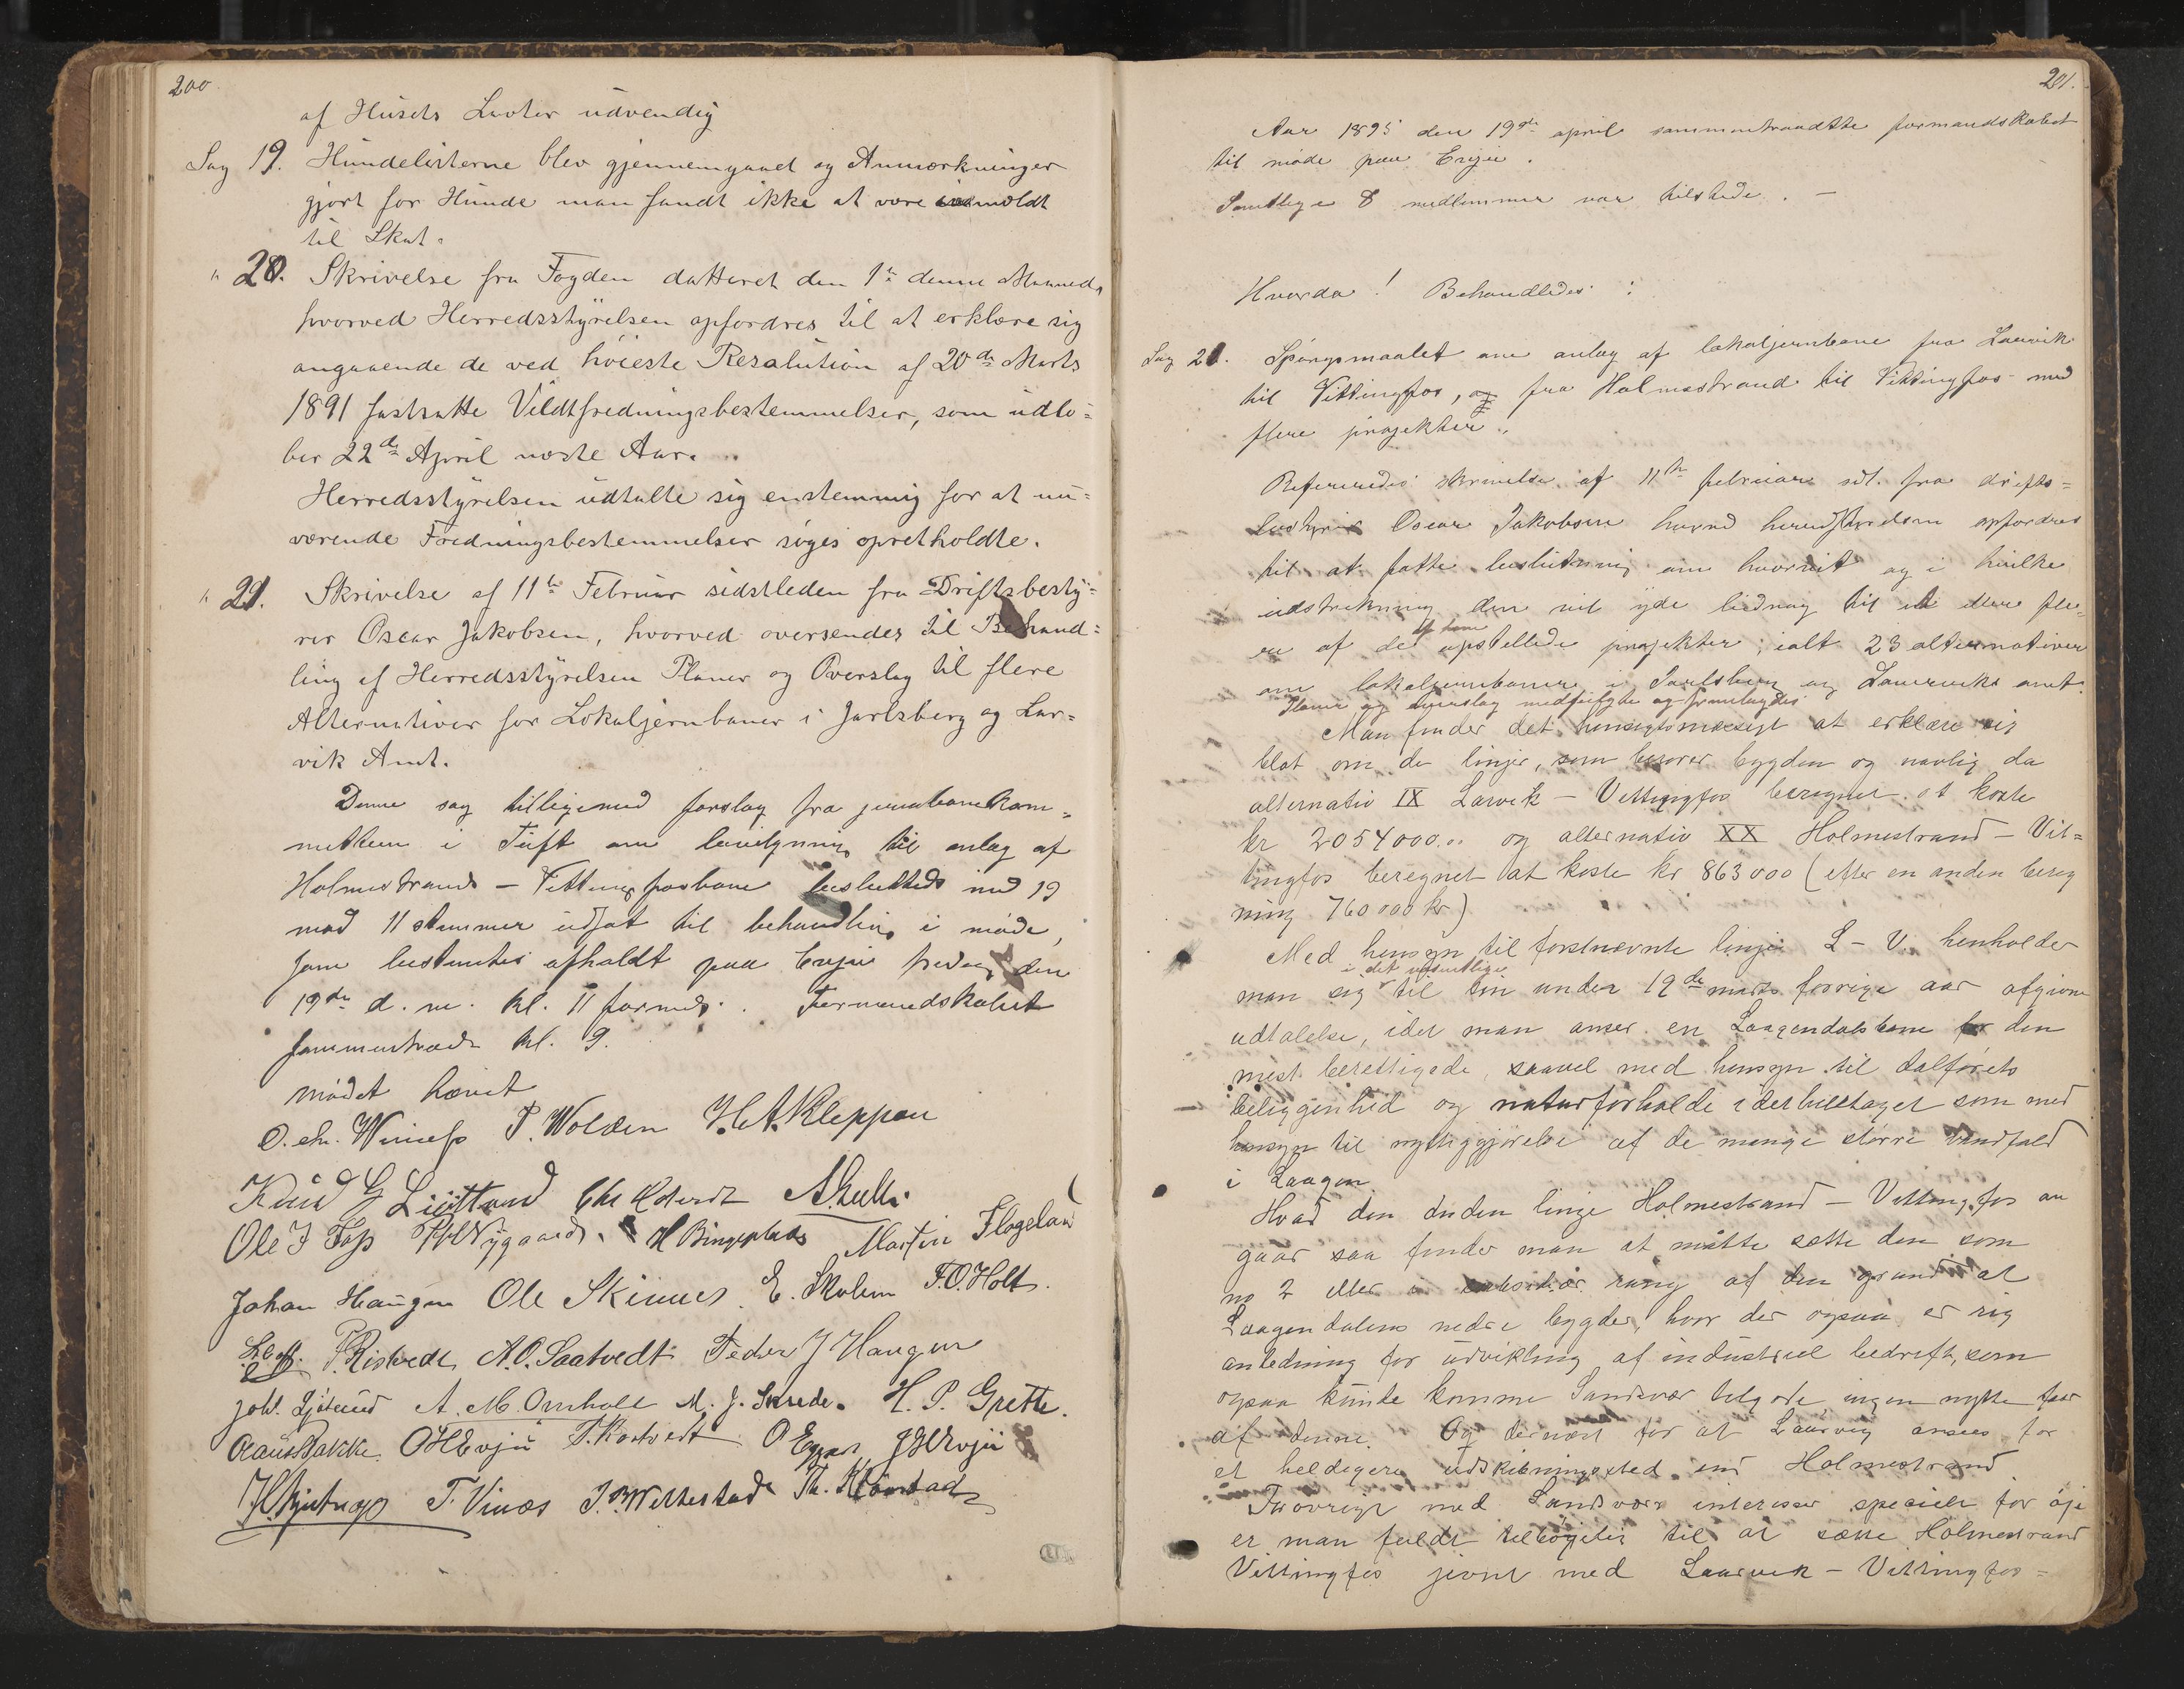 200
af Husets Lavter udvendig
Sag 19. Hundelisterne blev gjennemgaaet og Anmærkninger
gjort for Hunde man fandt ikke at være indmeldt
til Skat.
" 20. Skrivelse fra Fogden datteret den 1ste denne Maaned,
hvorved Herredsstyrelsen opfordres til at erklære sig
angaaende de ved høieste Resolution af 20de Marts
1891 fastsatte Vildtfredningsbestemmelser, som udlø=
ber 22de April næste Aar.
Herredsstyrelsen udtalte sig enstemmig for at nu=
værende Fredningsbestemmelser søges opretholdte.
" 21. Skrivelse af 11te Februar sidstleden fra Driftsbesty=
rer Oscar Jakobsen, hvorved oversendes til Behand=
ling af Herredsstyrelsen Planer og Overslag til flere
Alternativer for Lokaljernbaner i Jarlsberg og Lar=
vik Amt.
Denne sag tilligemed forslag fra jernbanekom=
mitteen i Tuft om bevilgning til anlæg af
Holmestrands – Vittingfosbane besluttedes med 19
mod 11 stemmer udsat til behandling i møde,
som bestemtes afholdt paa Evju fredag den
19de d. m. kl. 11 formd. Formandskabet
sammentræder kl. 9.
mødet hævet
P. Wolden H. A. Kleppen
Knud G
Ole J Foss Nygaard. H Bingeplads Martin Flogeland
Johan Haugen Ole Skinnes E. Skalem T. O. Holt.
P. Ristvedt A. O. Saatvedt Peder J Haugen
A. M. Omholt M. J. Skrede. H. P. Grette.
Claus Bakke O H Evju P. Rostvedt J H Evju
T. Vinæs Th. Klonstad
201.
Aar 1895 den 19de april sammentraadtte formandskabet
til møde paa Evju.
Samtlige 8 medlemmer var tilstede. –
Hvorda! Behandledes:
Sag 21. Spørgsmaalet om anlæg af lokaljernbane fra Laurvik
til Vittingfos, og fra Holmestrand til Vittingfos med
flere projekter.
Refereredes skrivelse af 11te februar sdl. fra drifts=
bestyrer Oscar Jakobsen hvorved herredstyrelsen opfordres
til at fatte beslutning om hvorvit og i hvilke
udstrækning den vil yde bidrag til et eller fle-
re af de af ham opstillede projekter; ialt 23 alternativer
om lokaljernbaner i Jarlsberg og Laurviks amt.
Planer og overslag medfulgte og fremlagdes
Man finder det hensigtsmæssigt at erklære sig
blot om de linjer, som berører bygden og navlig da
alternativ IX Larvik – Vittingfos beregnet at koste
kr 2054000.00 og alternativ XX Holmestrand – Vit=
tingfos beregnet at koste kr 863000 (efter en anden bereg
ning 760000 kr)
Med hensyn til førstnævnte linje L – V. henholder
man sig i det væsentlige til sin under 19de marts forrige aar afgivne
udtalelse, idet man anser en Laagendalsbane for den
mest berettigede, saavel med hensyn til dalførets
beliggenhed og naturforholde iderhiletaget som med
hensyn til nyttiggjørelse af de mange større vandfald
i Laagen
Hvad den anden linje Holmestrand – Vittingfos an
gaar saa finder man at måtte sætte den som
no 2 eller i subsidiær rang af den grund at
Laagendalens nedre bygder, hvor der ogsaa er rig
anledning for udvikling af industriel bedrift, som
ogsaa kunde komme Sandsvær tilgode, ingen nytte faar
af denne. Og dernæst for at Laurvig ansees for
et heldigere udskibningssted end Holmestrand
Forøvrigt med Sandsværs interesser specielt for øje
er man fuldt tilbøyelig til at sætte Holmestrand
Vittingfos jevnt med Laurvik – Vittingfos=